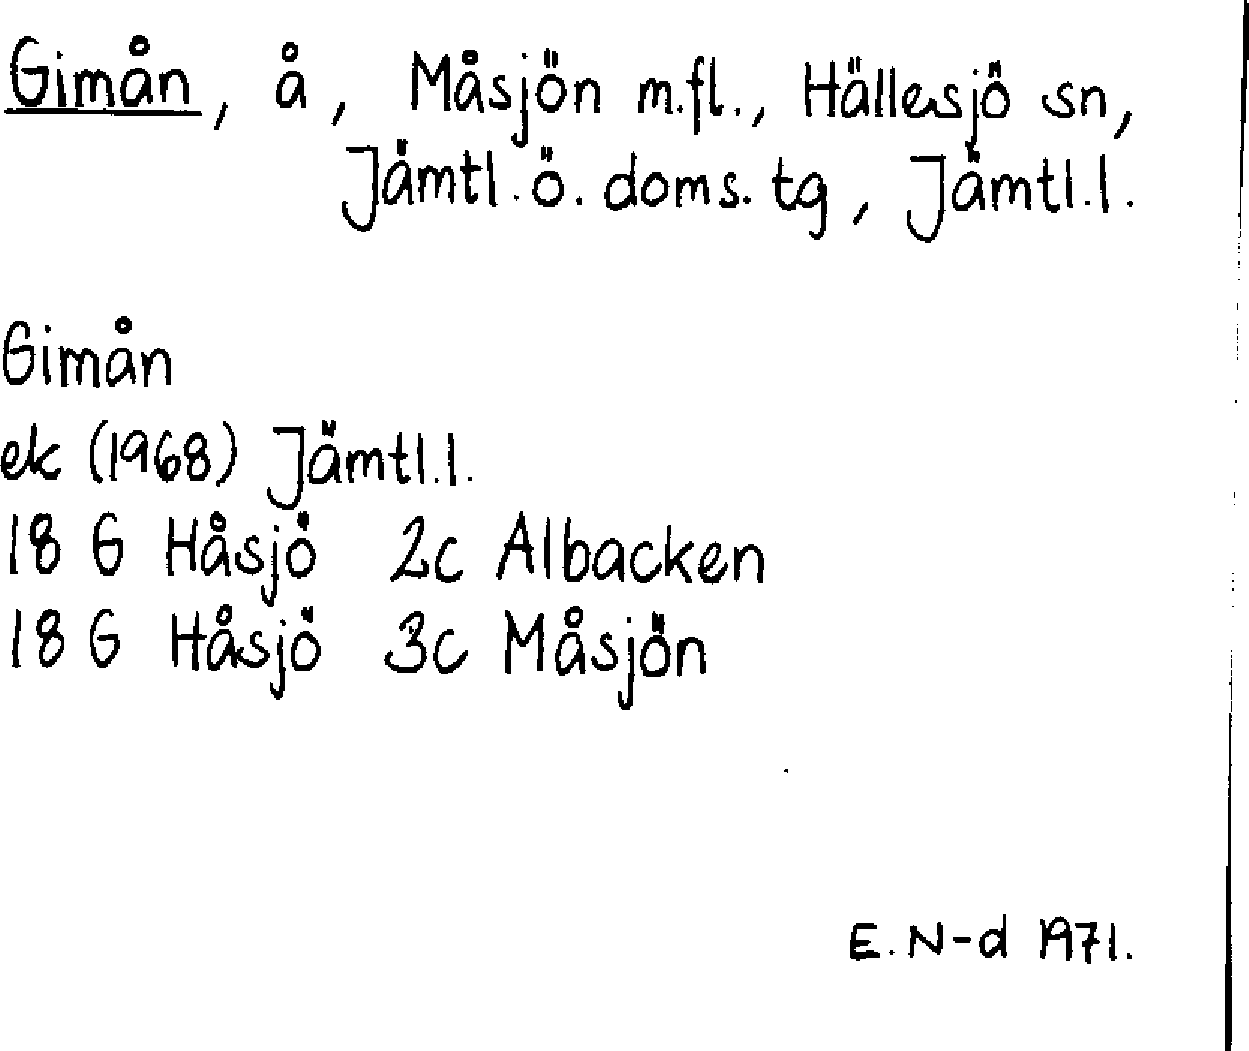 Gimån, å, Måsjön m.fl., Hällesjö sn,
Jämtl.ö.doms.tg, Jämtl.l.
Gimån
ek (1968) Jämtl.l.
18 G Håsjö 2c Albacken
18 G Håsjö 3c Måsjön
E.N-d 1971.